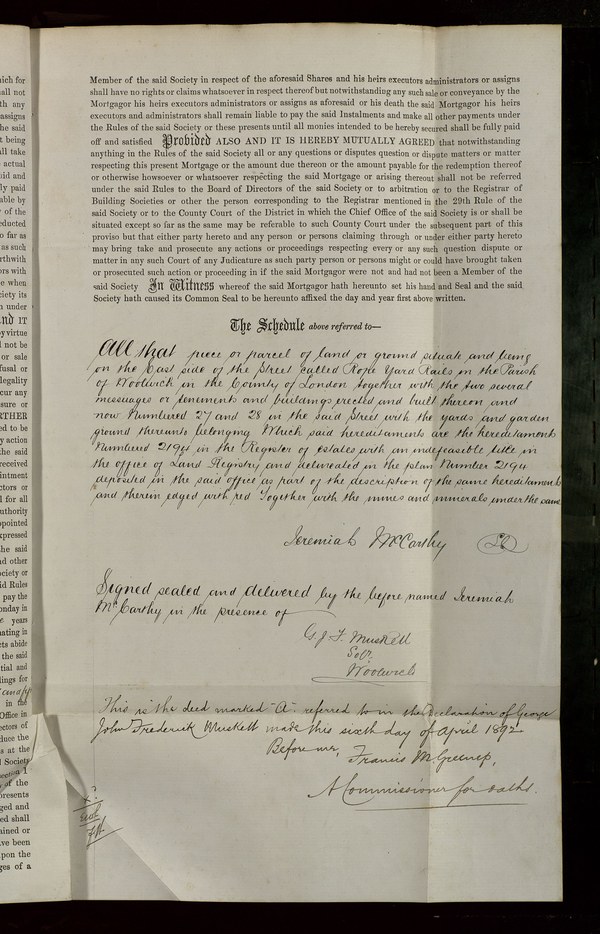 Member of the said Society in respect of the aforesaid Shares and his heirs executors administrators or assigns
shall have no rights or claims whatsoever in respect thereof but notwithstanding any such sale or conveyance by the
Mortgagor his heirs executors administrators or assigns as aforesaid or his death the said Mortgagor his heirs
executors and administrators shall remain liable to pay the said Instalments and make all other payments under
the Rules of the said Society or these presents until all monies intended to be hereby secured shall be fully paid
off and satisfied Provided ALSO AND IT IS HEREBY MUTUALLY AGREED that notwithstanding
anything in the Rules of the said Society all or any questions or disputes question or dispute matters or matter
respecting this present Mortgage or the amount due thereon or the amount payable for the redemption thereof
or otherwise howsoever or whatsoever respecting the said Mortgage or arising thereout shall not be referred
under the said Rules to the Board of Directors of the said Society or to arbitration or to the Registrar of
Building Societies or other the person corresponding to the Registrar mentioned in the 29th Rule of the
said Society or to the County Court of the District in which the Chief Office of the said Society is or shall be
situated except so far as the same may be referable to such County Court under the subsequent part of this
proviso but that either party hereto and any person or persons claiming through or under either party hereto
may bring take and prosecute any actions or proceedings respecting every or any such question dispute or
matter in any such Court of any Judicature as such party person or persons might or could have brought taken
or prosecuted such action or proceeding in if the said Mortgagor were not and had not been a Member of the
said Society In Witness whereof the said Mortgagor hath hereunto set his hand and Seal and the said
Society hath caused its Common Seal to be hereunto affixed the day and year first above written.
The Schedule above referred to—
All that piece or parcel of land or ground situate and being
on the East side of the Street called Rope Yard Rails in the Parish
of Woolwich in the County of London together with the two several
messuages or tenements and buildings erected and built thereon and
now Numbered 27 and 28 in the said Street with the yards and garden
ground thereunto belonging Which said hereditaments are the hereditaments
Numbered 2194 in the Register of estates with an indefeasible title in
the office of Land Registry and delineated in the plan Number 2194
deposited in the said office as part of the description of the same hereditaments
and therein edged with red Together with the mines and minerals under the same
Jeremiah McCarthy LS
Signed sealed and delivered by the before named Jeremiah
McCarthy in the presence of
G J F Muskett
Solr
Woolwich
This is the deed marked "A" referred to in the Declaration of George
John Frederick Muskett made this sixth day of April 1892
Before me,
Francis M. Greenep,
A Commissioner for oaths.